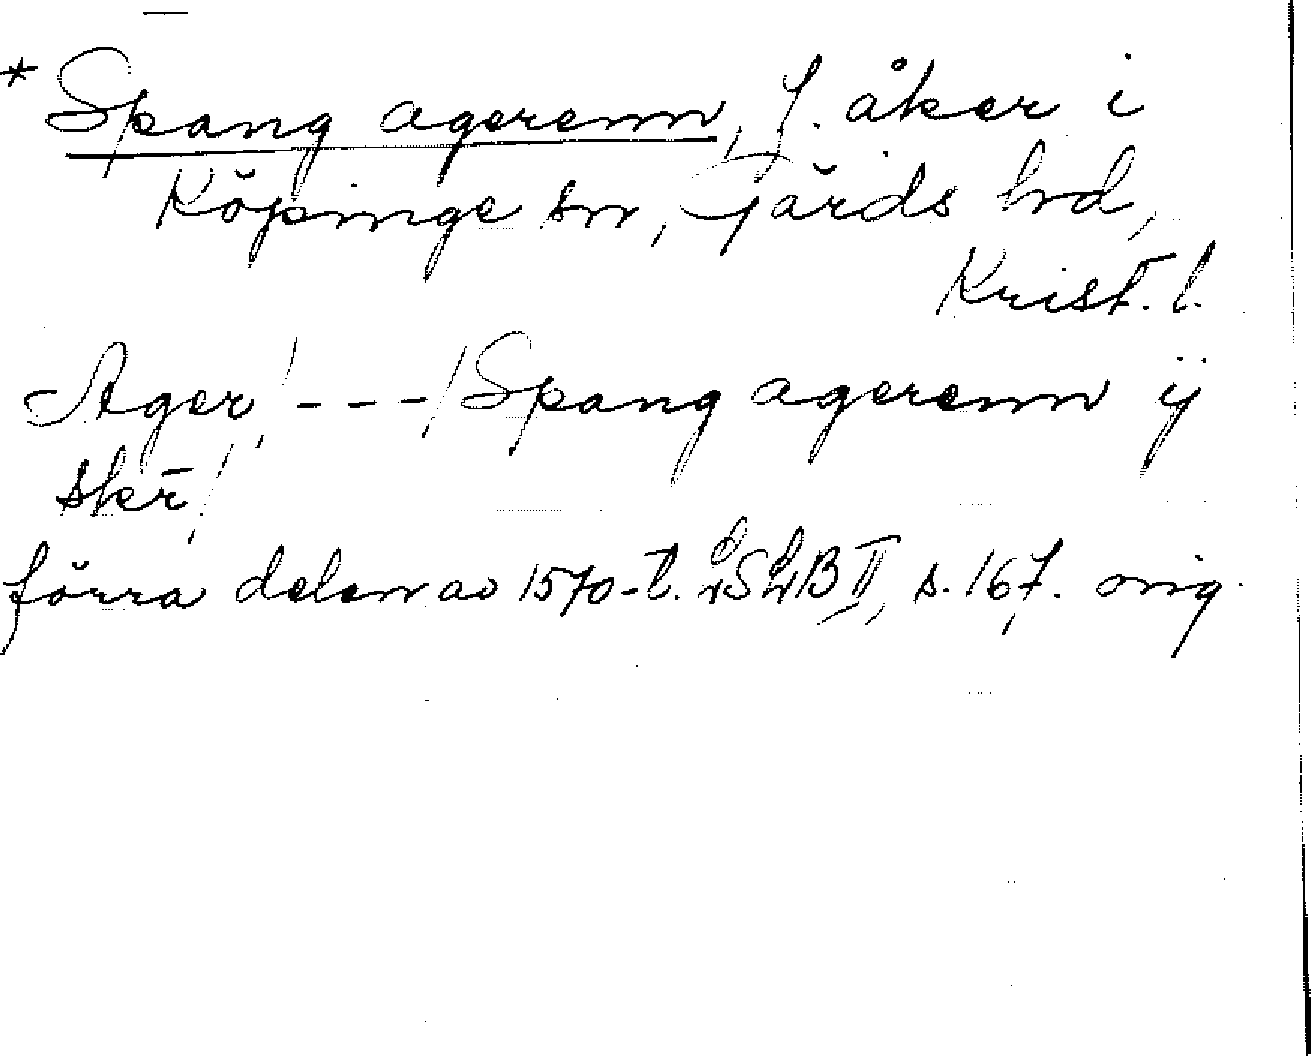 * Spang agerenn, f. åker i
Köpinge sn, Gärds hd,
Krist. l.
Ager /---/ Spang agerenn ij
skr̄/
förra delen av 1570-t. LSLB II, s. 167. orig.